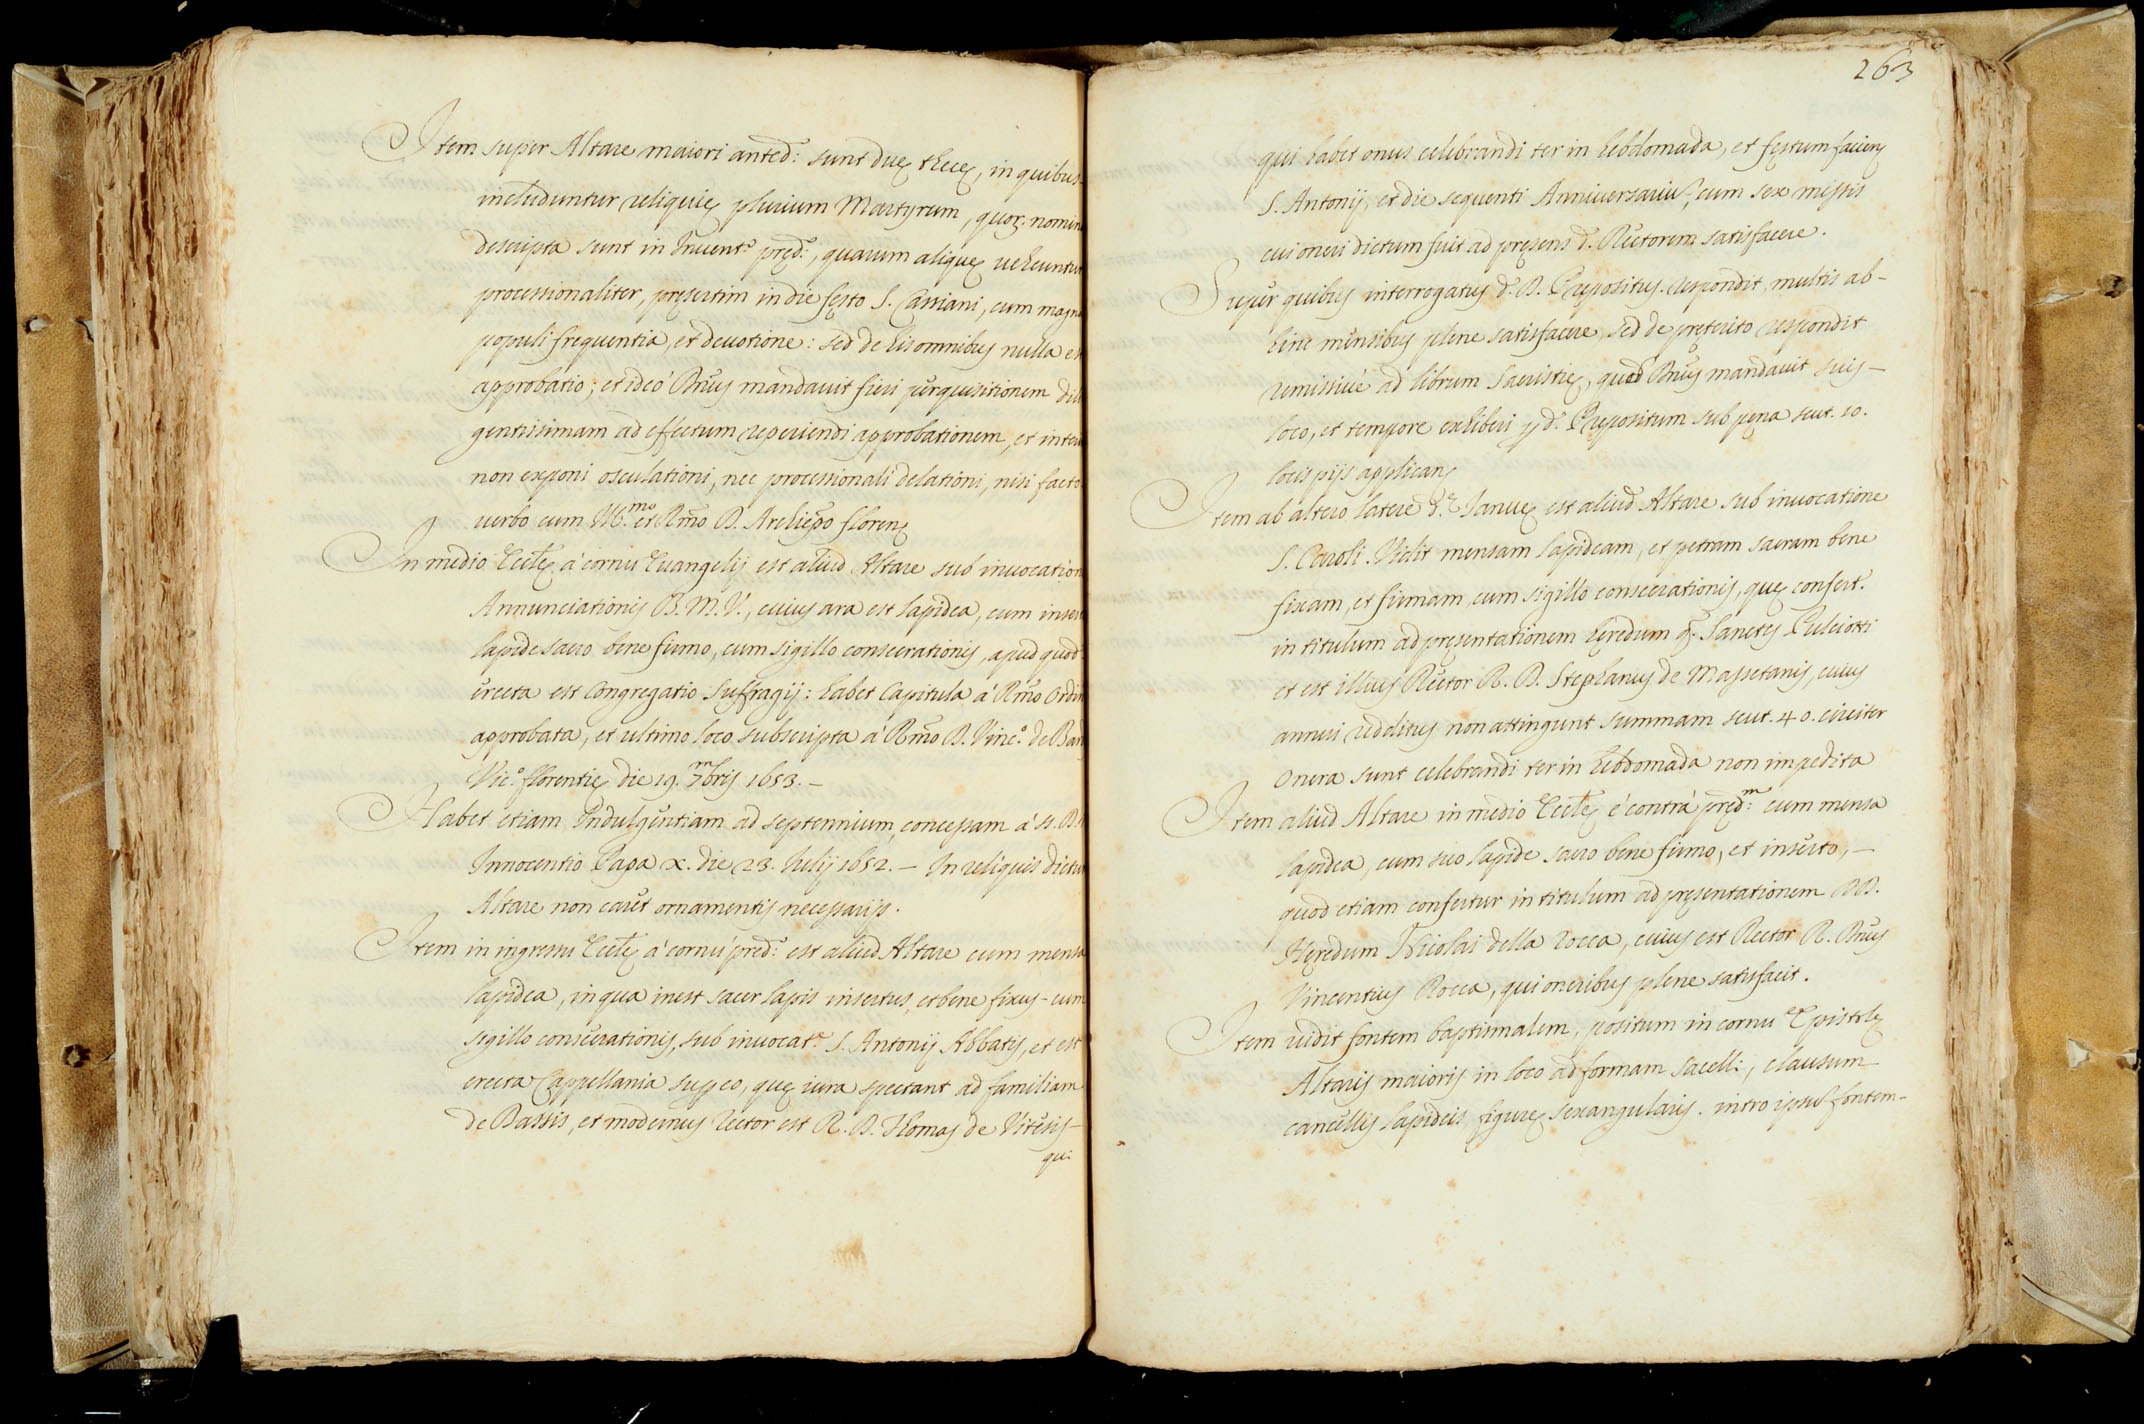 Item super Altare maiori anted: sunt duę thecę, in quibus
includuntur reliquię plurium Martyrum, quor. nomin
descripta sunt in Invent.º pręd:º, quarum aliquę vehuntur
processionaliter, pręsertim in die festo S. Cassiani, cum magn
populi frequentia, et devotione: sed de his omnibus nulla est
approbatio; et ideò Dnus mandavit fieri perquisitionem dili
gentissimam ad effectum reperiendi approbationem, et inter
non exponi osculationi, nec processionali delationi, nisi facto
verbo cum Ill.mo et Rmo D. Archiepo floren
In medio Ecclę à cornu Evangelij est aliud Altare sub invocation
Annunciationis B.M.V., cuius ara est lapidea, cum insert
lapide sacro bene firmo, cum sigillo consecrationis, apud quod
erecta est Congregatio Suffragij: habet Capitula à Rmo Ordin
approbata, et ultimo loco subscripta à Rmo D. Vinc.º de Bard
Vic.º florentię die 19. 7mbris 1653.–
Habet etiam Indulgentiam ad septennium, concessam à S. D. N
Innocentio Papa X. die 23. Iulij 1652.– In reliquis dictum
Altare non caret ornamentis necessarijs.
Item in ingressu Ecclę à cornu pred: est aliud Altare cum mensa
lapidea, in qua inest sacer lapis insertus, et bene fixus – cum
sigillo consecrationis, sub invocat.e S. Antonij Abbatis, et est
erecta Cappellania sup eo, quę iura spectant ad familiam
de Bassis, et modernus Rector est R. D. Thomas de Viteris–
qui
263
qui habet onus celebrandi ter in hebdomada, et festum facien
S. Antonij, et die sequenti Anniversariu, cum sex missis
cui oneri dictum fuit ad pręsens d. Rectorem satisfacere.
Super quibus interrogatus d. D. Prepositus respondit, multis ab–
hinc mensibus plene satisfacere, sed de pręterito respondit
remissivè ad librum Sacristię, quod Dnus mandavit suis–
loco, et tempore exhiberi p d. Prepositum sub pęna scut. 10.
locis pijs applican
Item ab altero latere d.ę Ianuę est aliud Altare sub invocatione
S. Caroli. Vidit mensam lapideam, et petram sacram bene
fixam, et firmam, cum sigillo consecrationis, quę confert.
in titulum ad pręsentationem hęredum q. Sanctis Pulciotti
et est illius Rector R. D. Stephanus de Massetanis, cuius
annui redditus non attingunt summam scut. 40. circiter
Onera sunt celebrandi ter in hebdomada non impedita
Item aliud Altare in medio Ecclę è contrà pręd:m cum mensa
lapidea, cum suo lapide sacro bene firmo, et inserto,–
quod etiam confertur in titulum ad pręsentationem DD.
Hęredum Nicolai della Rocca, cuius est Rector R. Dnus
Vincentius Rocca, qui oneribus plene satisfacit.
Item vidit fontem baptismalem, positum in cornu Epistolę
Altaris maioris in loco ad formam sacelli, clausum
cancellis lapideis figurę sexangularis. intro ipsu fontem–